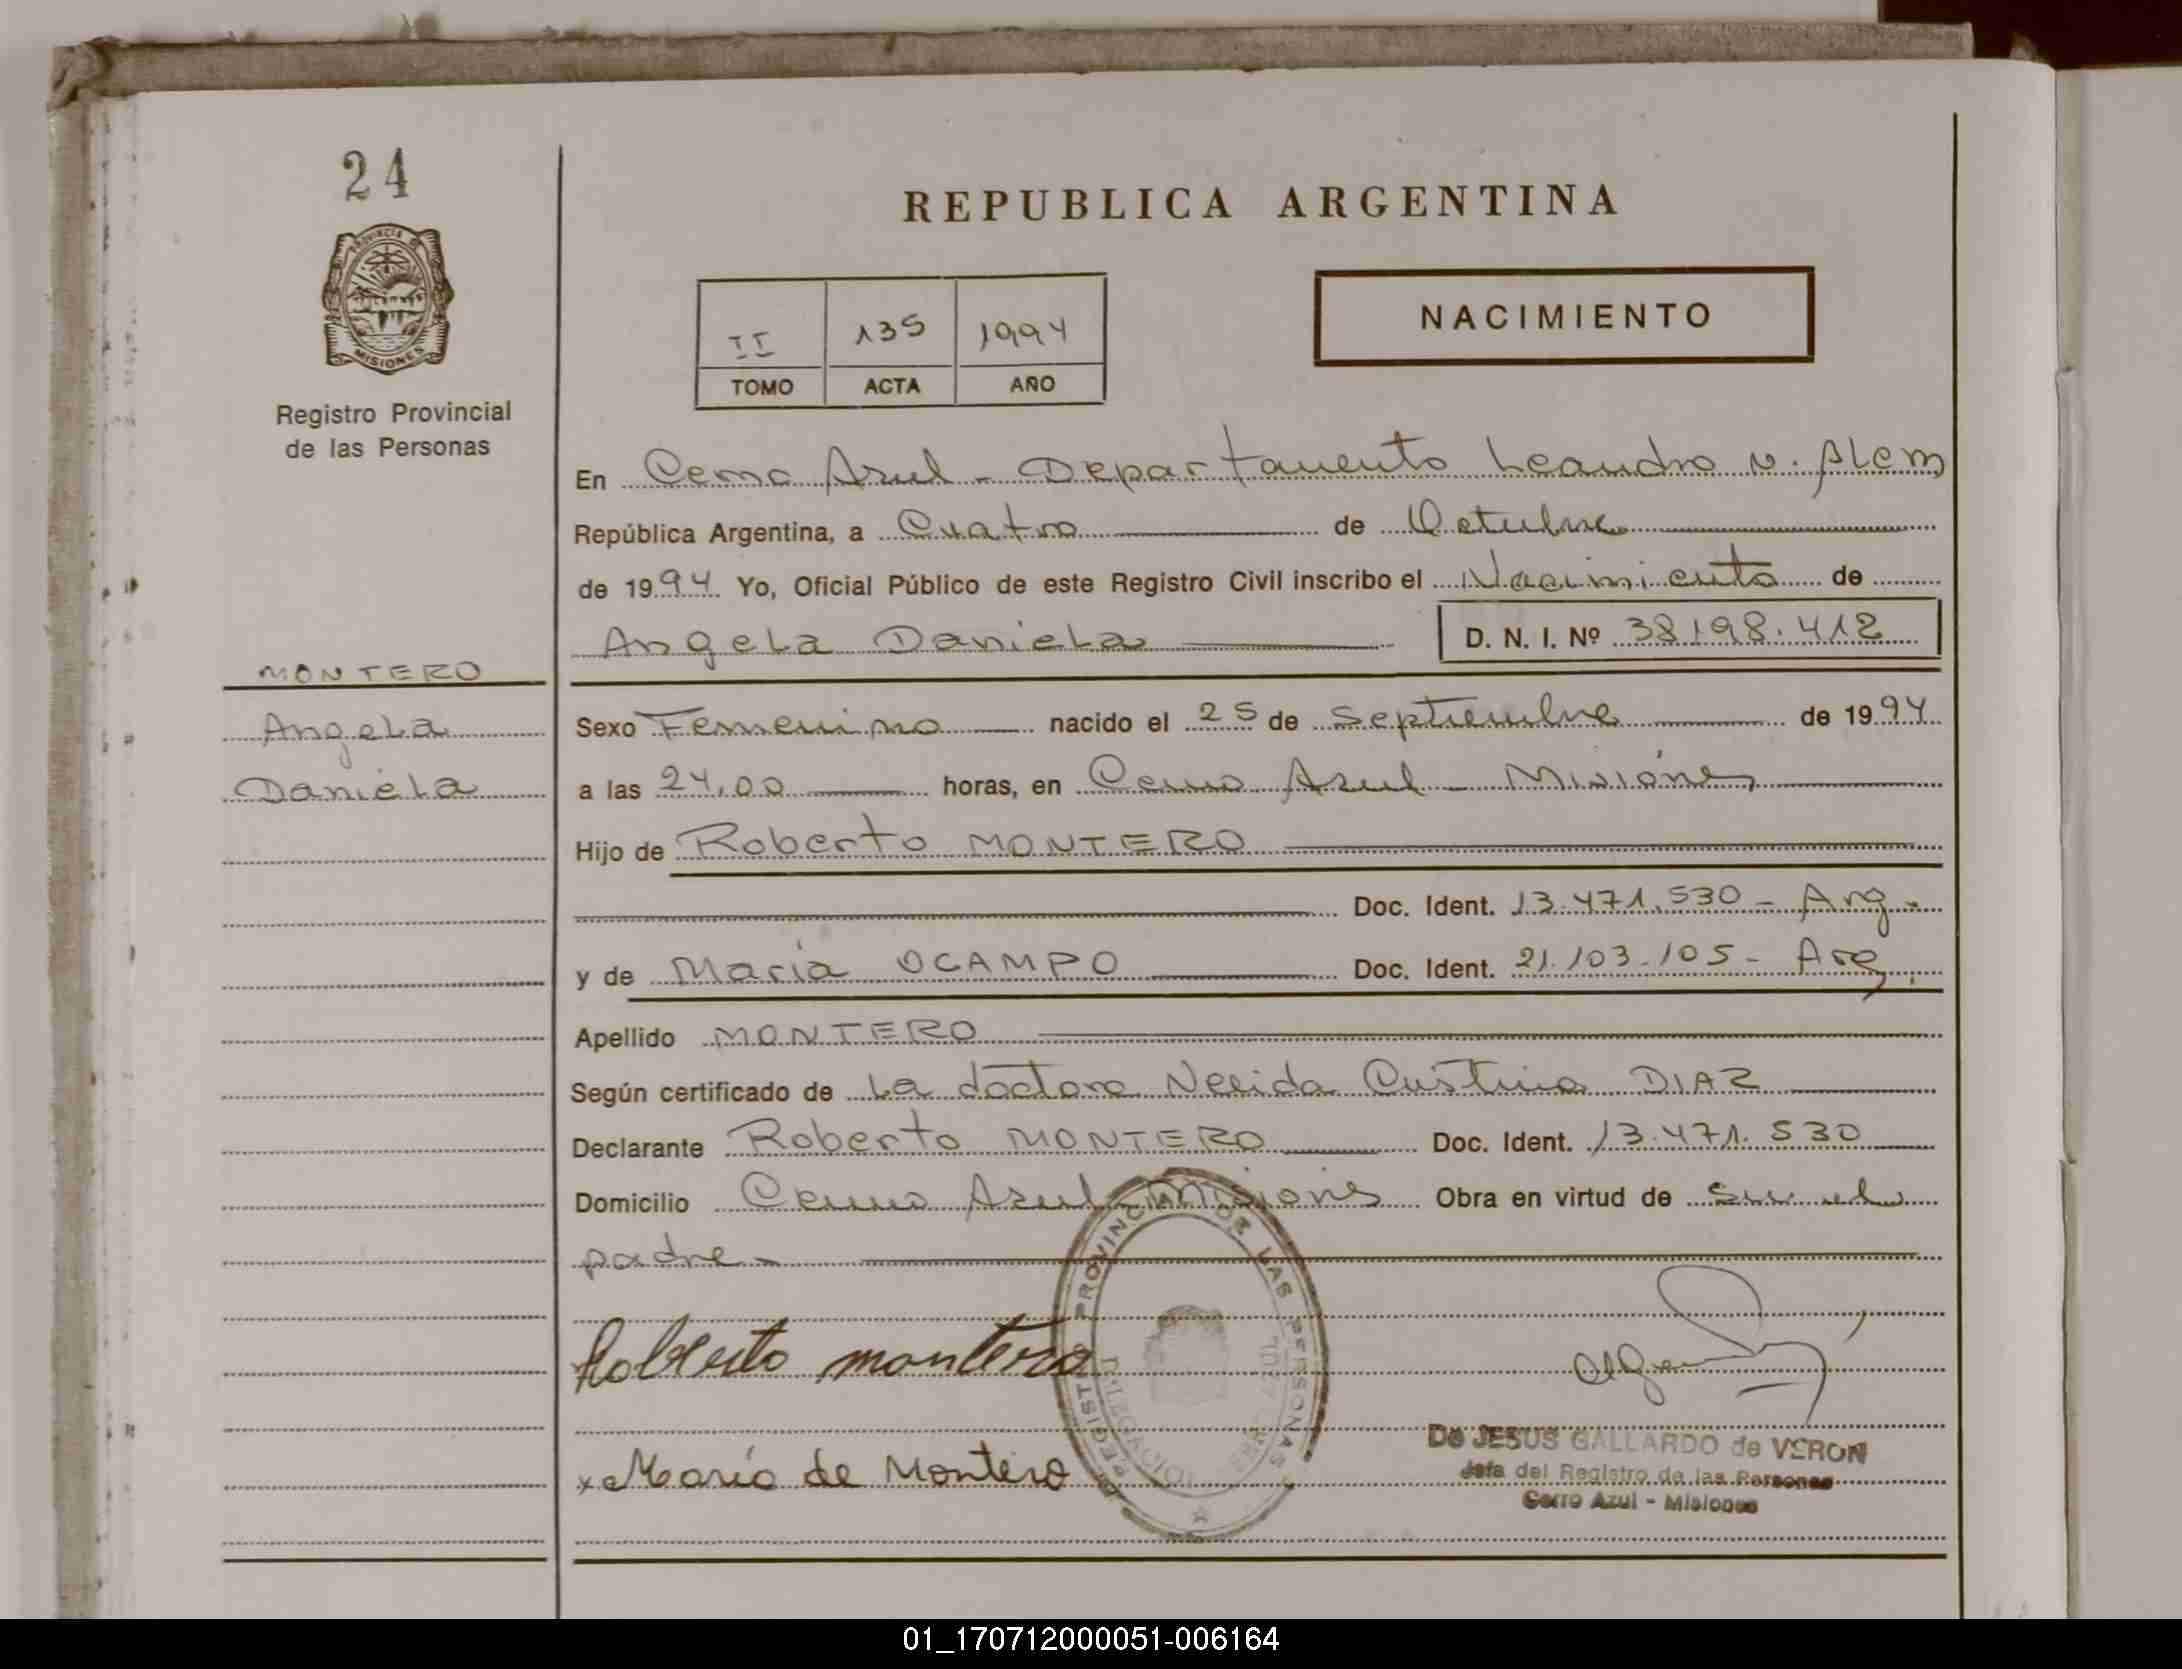 24
PROVINCIA DE
MISIONES
Registro Provincial
de las Personas
REPUBLICA ARGENTINA
NACIMIENTO
II 135 1994
TOMO ACTA AÑO
En Cerro Azul - Departamento Leandro N. Alem
República Argentina, a Cuatro de Octubre
de 1994 Yo, Oficial Público de este Registro Civil inscribo el Nacimiento de
Angela Daniela D. N. I. Nº 38198.412
MONTERO
Angela
Daniela
Sexo Femenino nacido el 25 de Septiembre de 1994
a las 24,00 horas, en Cerro Azul - Misiones
Hijo de Roberto MONTERO
Doc. Ident. 13.471.530 - Arg.
y de María OCAMPO Doc. Ident. 21.103.105 - Arg.
Apellido MONTERO
Según certificado de La doctora Nelida Cristina DIAZ
Declarante Roberto MONTERO Doc. Ident. 13.471.530
Domicilio Cerro Azul Misiones Obra en virtud de ser el
padre -
Roberto montero
x María de Montero
REGISTRO PROVINCIAL DE LAS PERSONAS
DELEGACION
De JESUS GALLARDO de VERON
Jefa del Registro de las Personas
Cerro Azul - Misiones
01_170712000051-006164